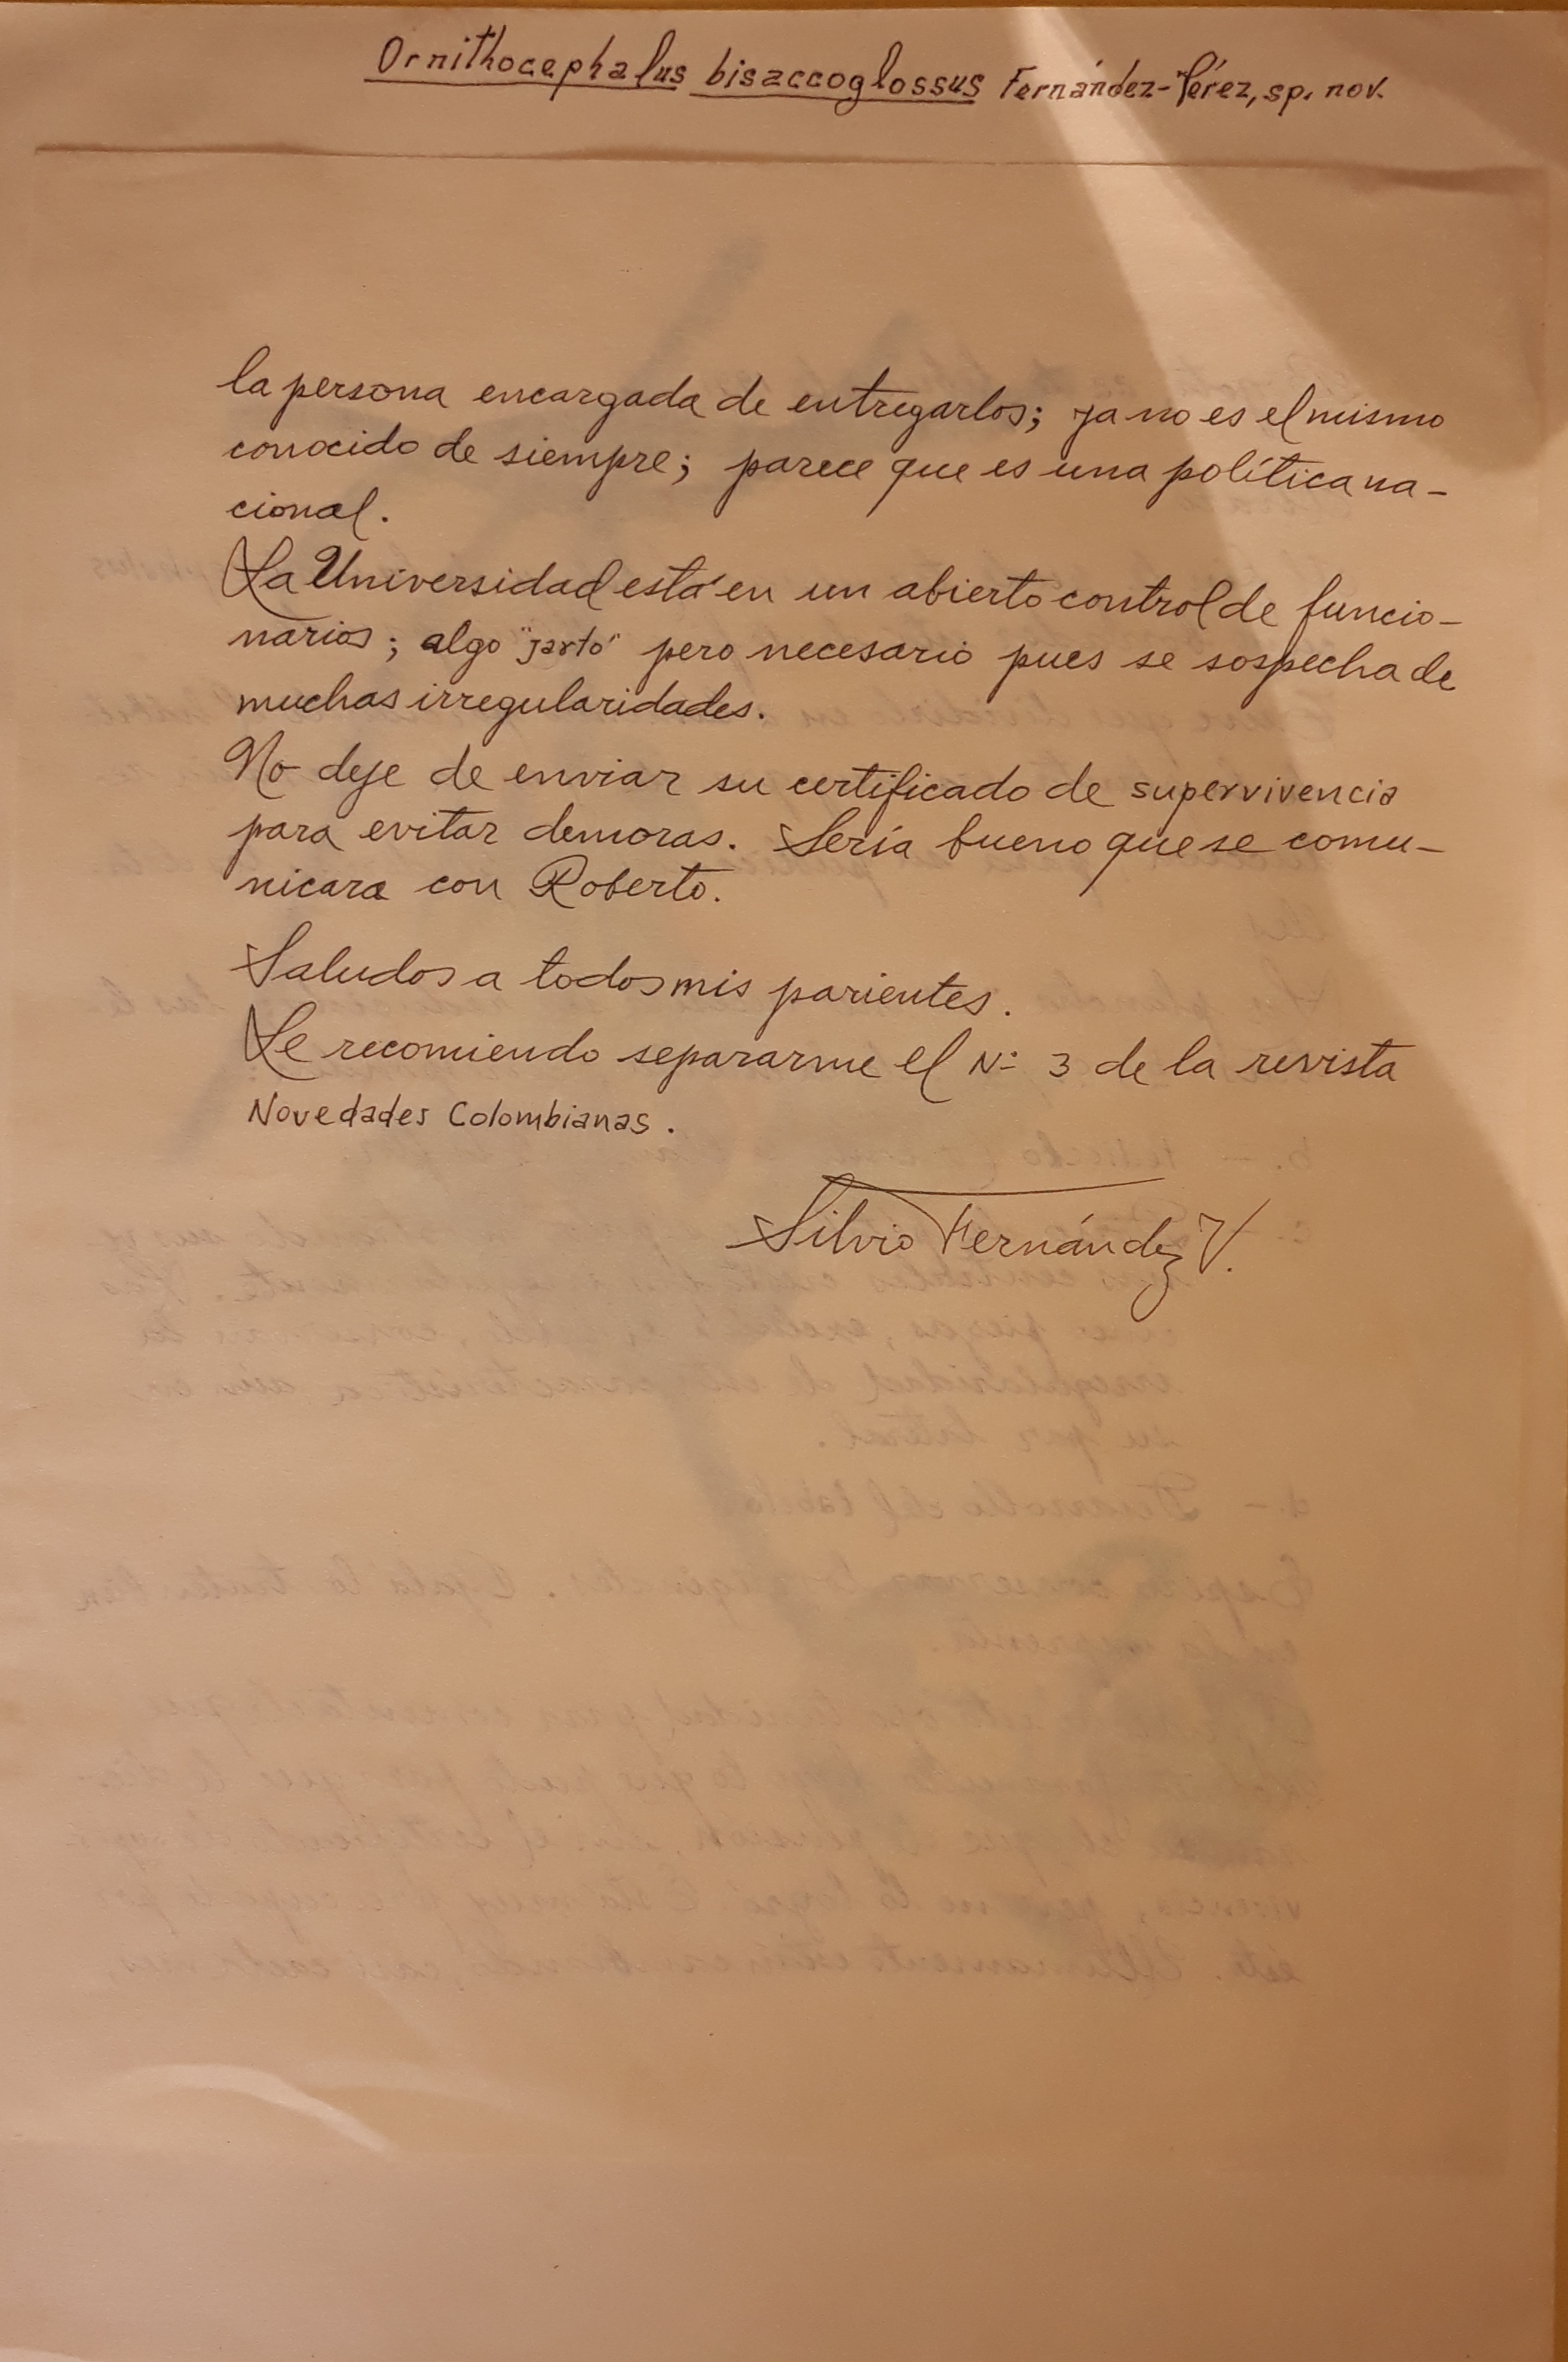 Ornithocephalus bisaccoglossus Fernández-Pérez, sp. nov.
la persona encargada de entregarlos; ya no es el mismo
conocido de siempre; parece que es una política na-
cional.
La Universidad está en un abierto control de funcio-
narios; algo "jarto" pero necesario pues se sospecha de
muchas irregularidades.
No deje de enviar su certificado de supervivencia
para evitar demoras. Sería bueno que se comu-
nicara con Roberto.
Saludos a todos mis parientes.
Le recomiendo separarme el Nº 3 de la revista
Novedades Colombianas.
Silvio Fernández V.